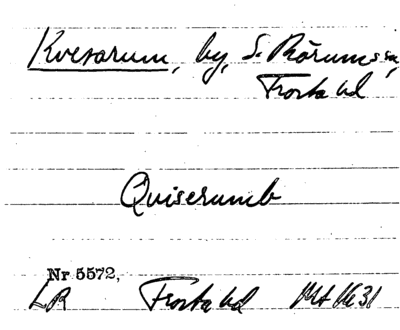 Kvesarum, by, S. Rörums sn,
Frosta hd
Quiserumb
Nr 5572,
LR Frosta hd